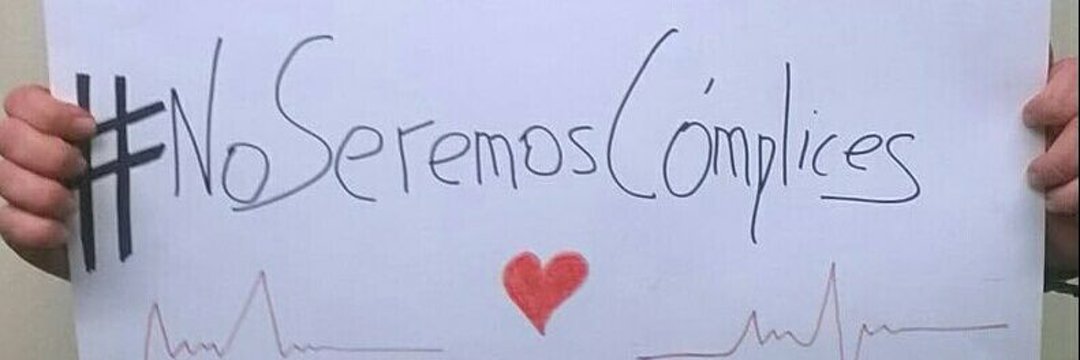 #NoSeremosCómplices